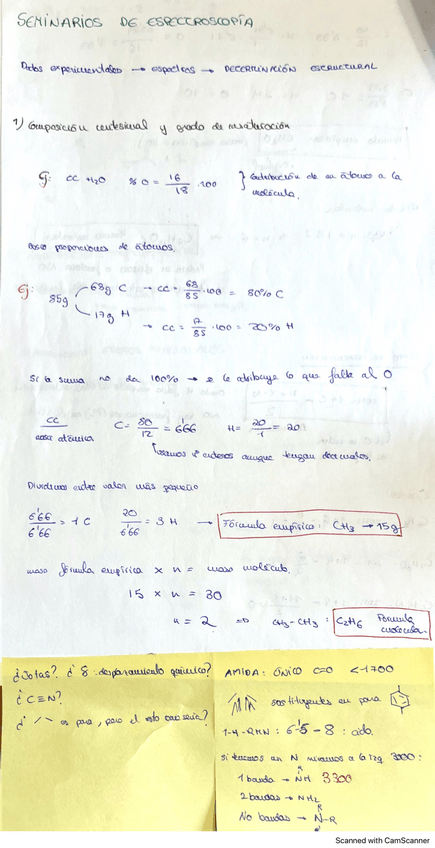 SEMINARIOS DE ESPECTROSCOPÍA
Datos experimentales → espectros → DETERMINACIÓN ESTRUCTURAL
1) Composición centesimal y grado de insaturación
Ej: CC H2O % O = 16/18 · 100 } Contribución de un átomo a la molécula.
proporciones de átomos.
Ej: 85g
68g C → CC = 68/85 · 100 = 80% C
17g H
→ CC = 17/85 · 100 = 20% H
Si la suma no da 100% → se le atribuye lo que falta al O
CC/masa atómica C = 80/12 = 6'66 H = 20/1 = 20
usamos enteros aunque tengan decimales.
Dividimos entre valor más pequeño
6'66/6'66 = 1 C 20/6'66 = 3 H → Fórmula empírica: CH3 → 15g
masa fórmula empírica × n = masa molécula.
15 × n = 30
n = 2 => CH3-CH3 : C2H6 Fórmula molecular.
¿Jotas? ¿ δ : desplazamiento químico?
¿ C≡N?
es para, pero el resto
AMIDA: ÚNICO C=O <1700
sustituyentes en para
1-H-RMN: 6'5 - 8 :
Si tenemos un N miramos a 3000:
1 banda → NH 3300
2 bandas → NH2
No bandas → N-R
R
Scanned with CamScanner